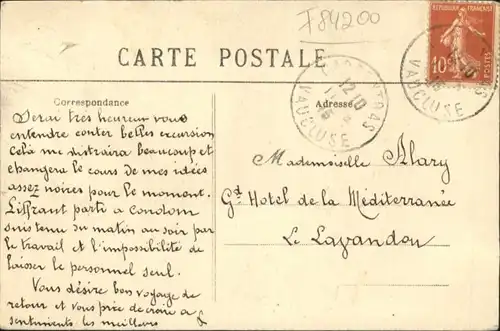 F84200
CARTE POSTALE
REPUBLIQUE FRANÇAISE
10c
POSTES
CARPENTRAS
12 10
VAUCLUSE
VAUCLUSE
Correspondance
Adresse
Serai très heureux vous
entendre conter belles excursion
Celà me distraira beaucoup et
changera le cours de mes idées
assez noires pour le moment.
parti a condom
suis tenu du matin au soir par
le travail et l'impossibilité de
laisser le personnel seul.
Vous désire bon voyage de
retour et vous prie de croire a
sentiments les meilleurs
Mademoiselle Alary
Gd Hotel de la Méditerranée
Le Lavandou